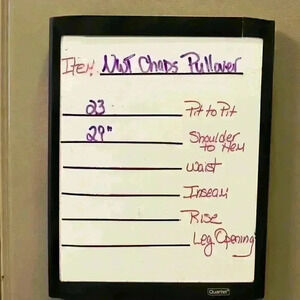 Item NWT Chaps Pullover
23 Pit to Pit
29" Shoulder to Hem
Waist
Inseam
Rise
Leg Opening
Quartet